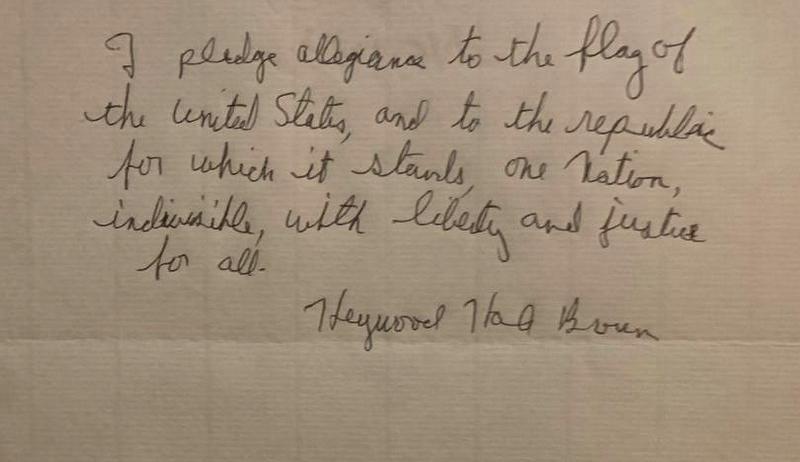 I pledge allegiance to the flag of
the United States, and to the republic
for which it stands, one Nation,
indivisible, with liberty and justice
for all.
Heywood Hale Broun